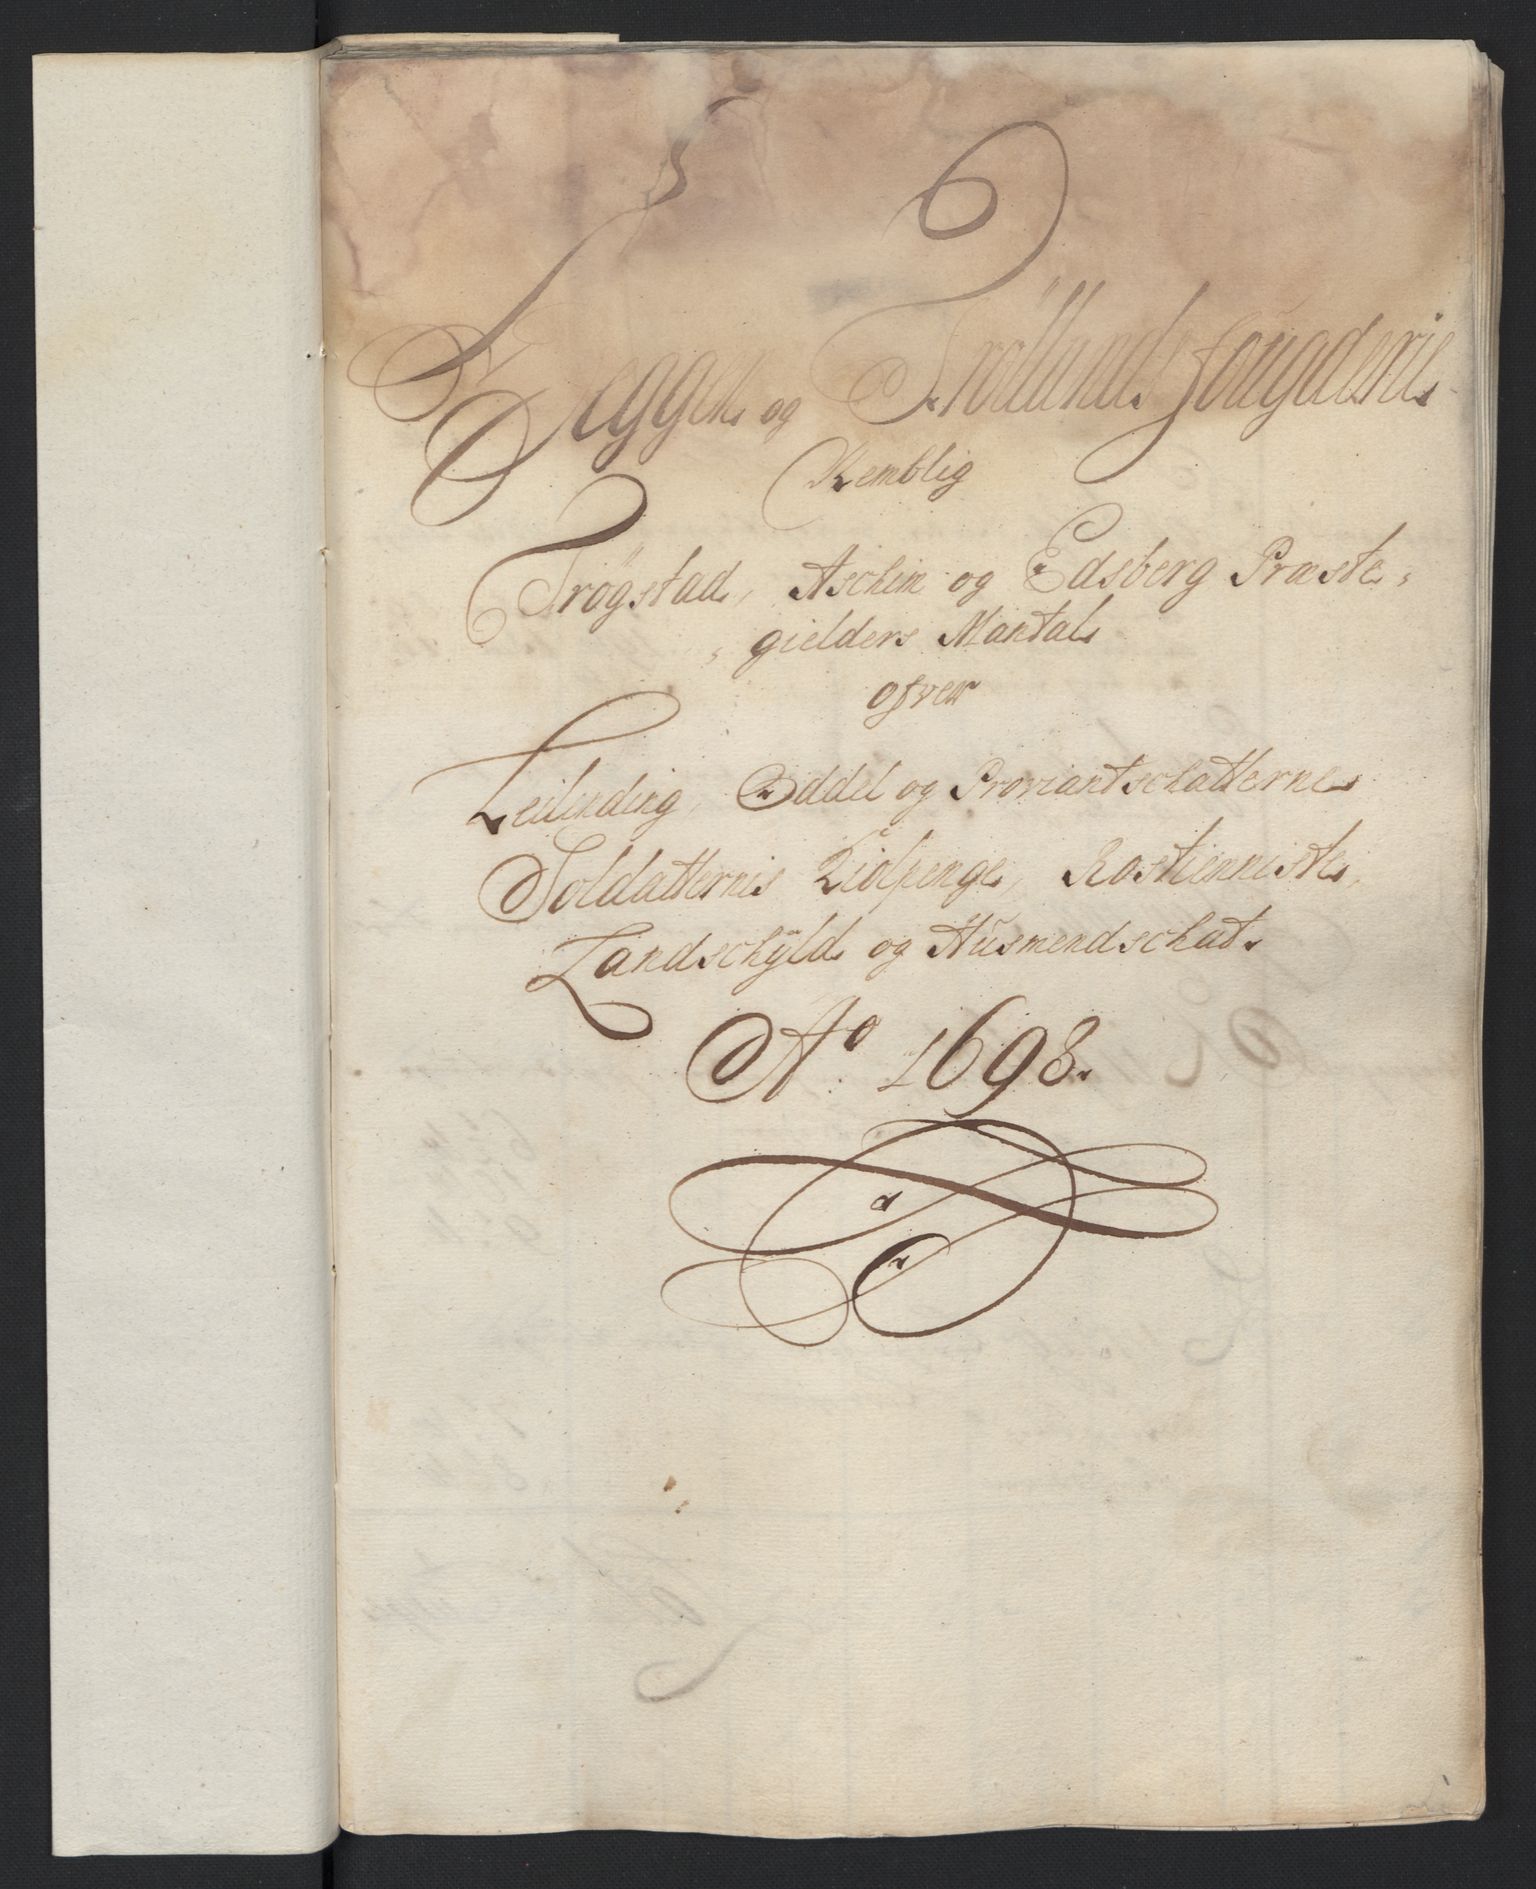 Heggen og Frölands fougderie
Nemblig
Trögstad, Aschim og Edsberg Præste,
, gielders Mantal
ofver
Leilending, Oddel og Proviantschatterne
Soldatternis Kiolpenge, Rostienniste,
Landschÿld og Hüsmendschat.
Ao. 1698.